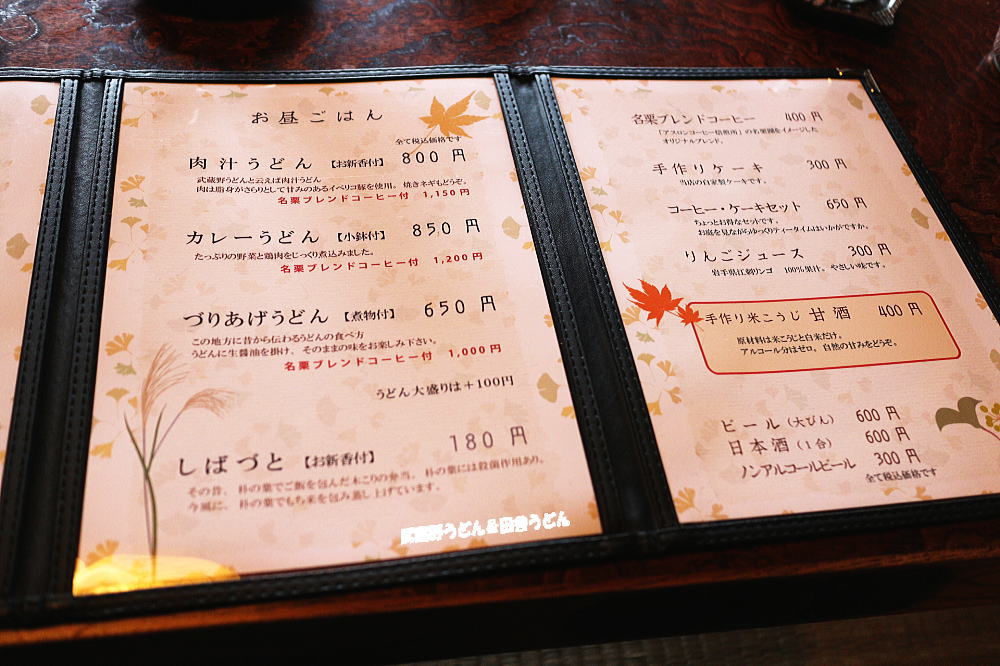 お昼ごはん
全て税込価格です
肉汁うどん 【お新香付】 800 円
武蔵野うどんと云えば肉汁うどん
肉は脂身がさらりとして甘みのあるイベリコ豚を使用。焼きネギもどうぞ。
名栗ブレンドコーヒー付 1,150円
カレーうどん 【小鉢付】 850 円
たっぷりの野菜と鶏肉をじっくり煮込みました。
名栗ブレンドコーヒー付 1,200円
づりあげうどん 【煮物付】 650 円
この地方に昔から伝わるうどんの食べ方
うどんに生醤油を掛け、そのままの味をお楽しみ下さい。
名栗ブレンドコーヒー付 1,000円
うどん大盛りは＋100円
しばづと 【お新香付】 180 円
その昔、朴の葉でご飯を包んだ木こりの弁当。朴の葉には殺菌作用あり。
今風に、朴の葉でもち米を包み蒸し上げています。
武蔵野うどん&田舎うどん
名栗ブレンドコーヒー 400 円
「アスロンコーヒー焙煎所」の名栗湖をイメージした
オリジナルブレンド。
手作りケーキ 300 円
当店の自家製ケーキです。
コーヒー・ケーキセット 650 円
ちょっとお得なセットです。
お庭を見ながらゆっくりティータイムはいかがですか。
りんごジュース 300 円
岩手県江刺リンゴ 100％果汁。やさしい味です。
手作り米こうじ 甘酒 400 円
原材料は米こうじと白米だけ。
アルコール分はゼロ。自然の甘みをどうぞ。
ビール（大びん） 600 円
日本酒（1合） 600 円
ノンアルコールビール 300 円
全て税込価格です